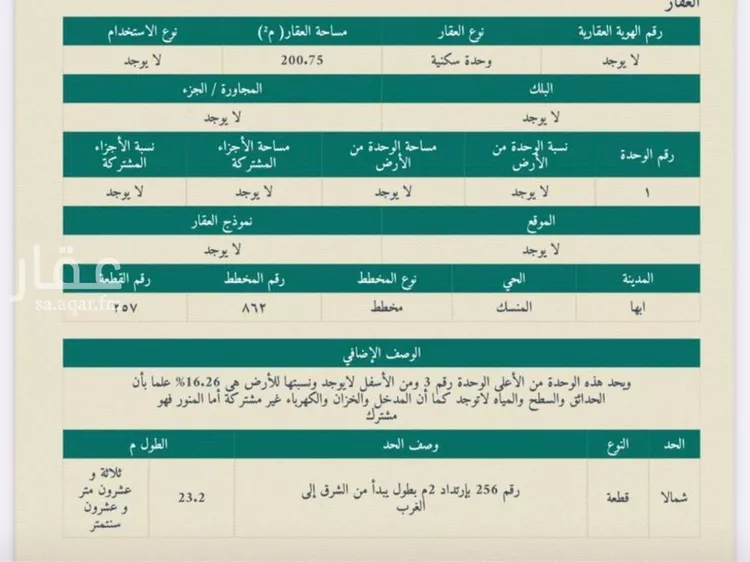 العقار
رقم الهوية العقارية نوع العقار مساحة العقار( م²) نوع الاستخدام
لا يوجد وحدة سكنية 200.75 لا يوجد
البلك المجاورة / الجزء
لا يوجد لا يوجد
رقم الوحدة نسبة الوحدة من الأرض مساحة الوحدة من الأرض مساحة الأجزاء المشتركة نسبة الأجزاء المشتركة
١ لا يوجد لا يوجد لا يوجد لا يوجد
الموقع نموذج العقار
لا يوجد لا يوجد
المدينة الحي نوع المخطط رقم المخطط رقم القطعة
ابها المنسك مخطط ٨٦٢ ٢٥٧
عقار
sa.aqar.fm
الوصف الإضافي
ويحد هذه الوحدة من الأعلى الوحدة رقم 3 ومن الأسفل لايوجد ونسبتها للأرض هى 16.26% علما بأن
الحدائق والسطح والمياه لاتوجد كما أن المدخل والخزان والكهرباء غير مشتركة أما المنور فهو
مشترك
الحد النوع وصف الحد الطول م
شمالا قطعة رقم 256 بإرتداد 2م بطول يبدأ من الشرق إلى الغرب 23.2 ثلاثة و عشرون متر و عشرون سنتمتر